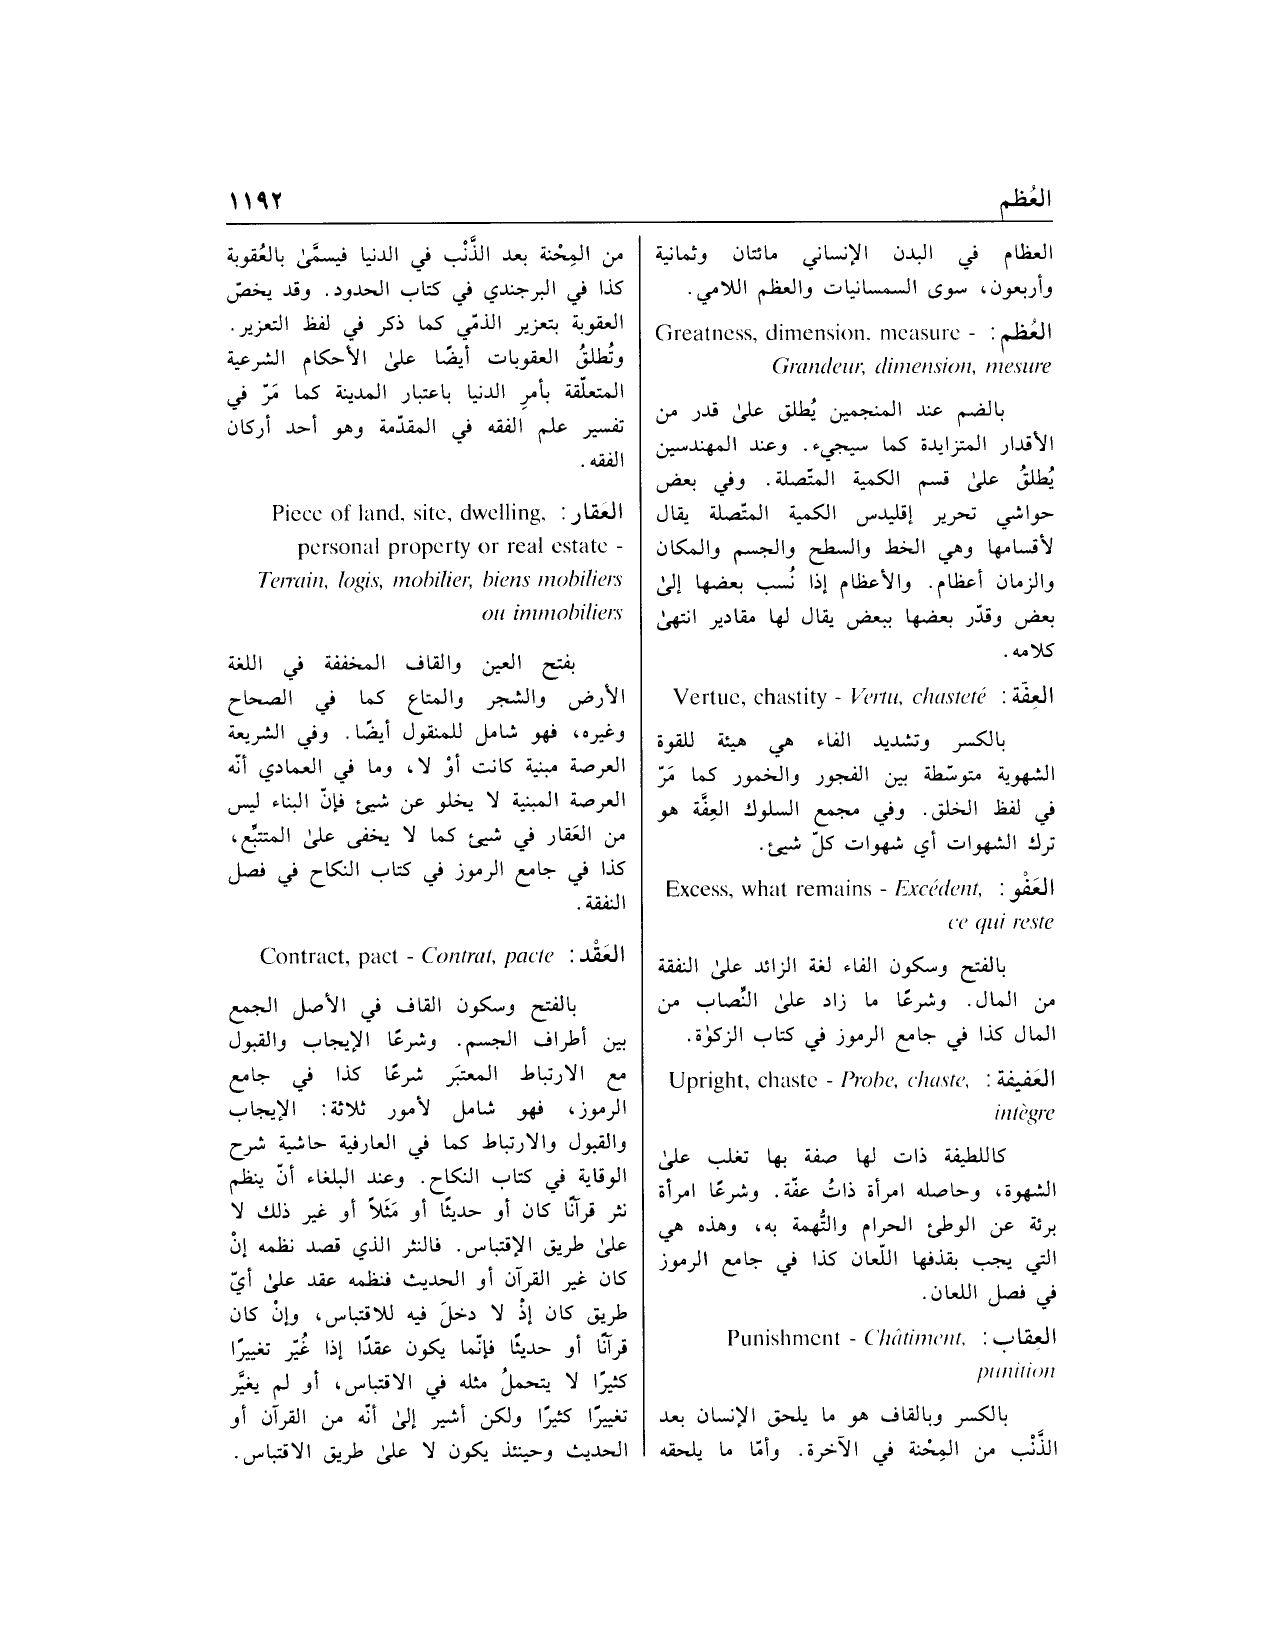 العُظم
١١٩٢
العظام في البدن الإنساني مائتان وثمانية
وأربعون، سوى السمسانيات والعظم اللامي.
العُظم: Greatness, dimension, measure -
Grandeur, dimension, mesure
بالضم عند المنجمين يُطلق علىٰ قدر من
الأقدار المتزايدة كما سيجيء. وعند المهندسين
يُطلقُ علىٰ قسم الكمية المتّصلة. وفي بعض
حواشي تحرير إقليدس الكمية المتّصلة يقال
لأقسامها وهي الخط والسطح والجسم والمكان
والزمان أعظام. والأعظام إذا نُسب بعضها إلىٰ
بعض وقدّر بعضها ببعض يقال لها مقادير انتهىٰ
كلامه.
العِفّة: Vertue, chastity - Vertu, chasteté
بالكسر وتشديد الفاء هي هيئة للقوة
الشهوية متوسّطة بين الفجور والخمور كما مَرّ
في لفظ الخلق. وفي مجمع السلوك العِفَّة هو
ترك الشهوات أي شهوات كلّ شيئ.
العَفْو: Excess, what remains - Excédent,
ce qui reste
بالفتح وسكون الفاء لغة الزائد علىٰ النفقة
من المال. وشرعًا ما زاد علىٰ النِّصاب من
المال كذا في جامع الرموز في كتاب الزكوٰة.
العَفيفة: Upright, chaste - Probe, chaste,
intègre
كاللطيفة ذات لها صفة بها تغلب علىٰ
الشهوة، وحاصله امرأة ذاتُ عفّة. وشرعًا امرأة
برئة عن الوطئ الحرام والتُّهمة به، وهذه هي
التي يجب بقذفها اللّعان كذا في جامع الرموز
في فصل اللعان.
العِقاب: Punishment - Châtiment,
punition
بالكسر وبالقاف هو ما يلحق الإنسان بعد
الذَّنْب من المِحْنة في الآخرة. وأمّا ما يلحقه
من المِحْنة بعد الذَّنْب في الدنيا فيسمَّىٰ بالعُقوبة
كذا في البرجندي في كتاب الحدود. وقد يخصّ
العقوبة بتعزير الذمّي كما ذكر في لفظ التعزير.
وتُطلقُ العقوبات أيضًا علىٰ الأحكام الشرعية
المتعلّقة بأمرِ الدنيا باعتبار المدينة كما مَرّ في
تفسير علم الفقه في المقدّمة وهو أحد أركان
الفقه.
العَقار: Piece of land, site, dwelling,
personal property or real estate -
Terrain, logis, mobilier, biens mobiliers
ou immobiliers
بفتح العين والقاف المخففة في اللغة
الأرض والشجر والمتاع كما في الصحاح
وغيره، فهو شامل للمنقول أيضًا. وفي الشريعة
العرصة مبنية كانت أوْ لا، وما في العمادي أنّه
العرصة المبنية لا يخلو عن شيئ فإنّ البناء ليس
من العَقار في شيئ كما لا يخفى علىٰ المتتبِّع،
كذا في جامع الرموز في كتاب النكاح في فصل
النفقة.
العَقْد: Contract, pact - Contrat, pacte
بالفتح وسكون القاف في الأصل الجمع
بين أطراف الجسم. وشرعًا الإيجاب والقبول
مع الارتباط المعتبَر شرعًا كذا في جامع
الرموز، فهو شامل لأمور ثلاثة: الإيجاب
والقبول والارتباط كما في العارفية حاشية شرح
الوقاية في كتاب النكاح. وعند البلغاء أنّ ينظم
نثر قرآنًا كان أو حديثًا أو مَثَلاً أو غير ذلك لا
علىٰ طريق الإقتباس. فالنثر الذي قصد نظمه إنْ
كان غير القرآن أو الحديث فنظمه عقد علىٰ أيّ
طريق كان إذْ لا دخلَ فيه للاقتباس، وإنْ كان
قرآنًا أو حديثًا فإنّما يكون عقدًا إذا غُيّر تغييرًا
كثيرًا لا يتحملُ مثله في الاقتباس، أو لم يغيَّر
تغييرًا كثيرًا ولكن أشير إلىٰ أنّه من القرآن أو
الحديث وحينئذ يكون لا علىٰ طريق الاقتباس.